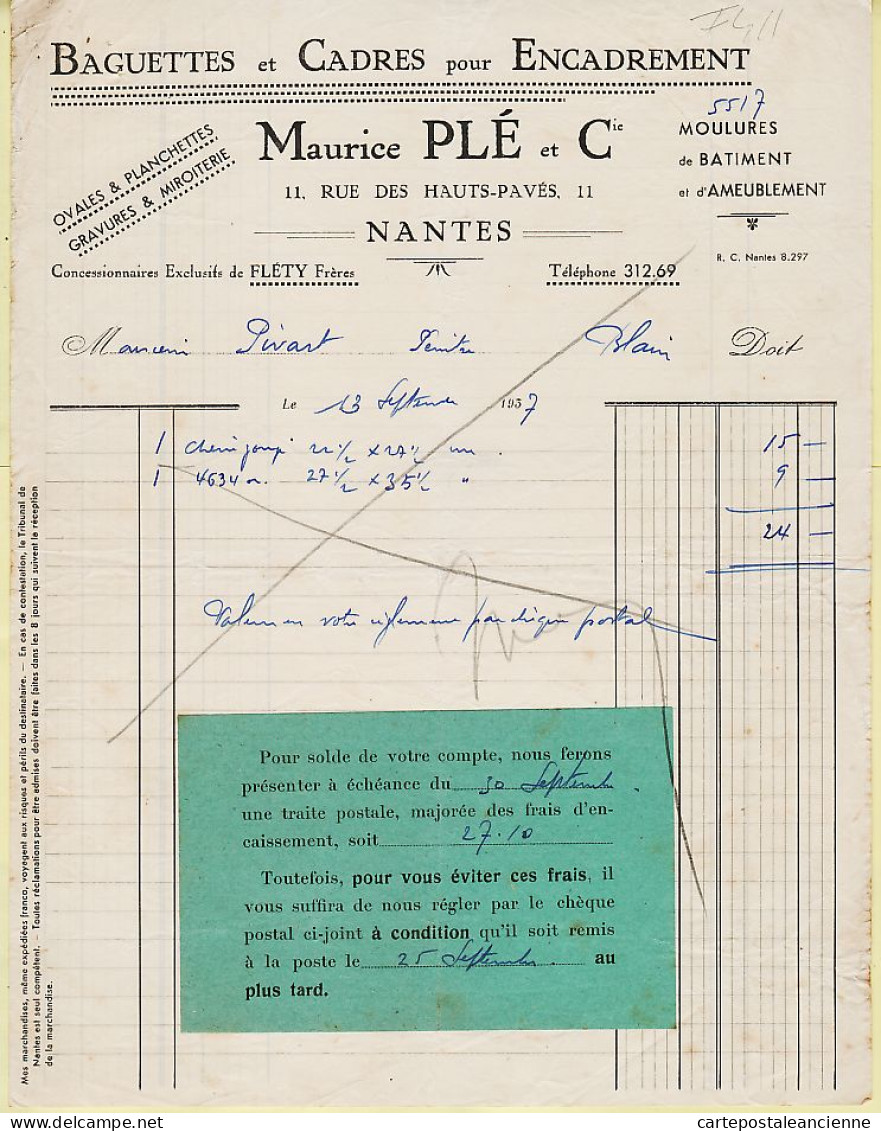 BAGUETTES et CADRES pour ENCADREMENT
5517
OVALES & PLANCHETTES
GRAVURES & MIROITERIE
Maurice PLÉ et Cie
11, RUE DES HAUTS-PAVÉS, 11
NANTES
MOULURES
de BATIMENT
et d'AMEUBLEMENT
R. C. Nantes 8.297
Concessionnaires Exclusifs de FLÉTY Frères
Téléphone 312.69
Pivart Peintre Blain Doit
Le 13 Septembre 1937
1 22 1/2 x 27 1/2 15 —
1 4634 27 1/2 x 35 1/2 " 9 —
24 —
Valeur en votre règlement par chèque postal
Pour solde de votre compte, nous ferons
présenter à échéance du 30 Septembre
une traite postale, majorée des frais d'en-
caissement, soit 27.10
Toutefois, pour vous éviter ces frais, il
vous suffira de nous régler par le chèque
postal ci-joint à condition qu'il soit remis
à la poste le 25 Septembre au
plus tard.
Mes marchandises, même expédiées franco, voyagent aux risques et périls du destinataire. — En cas de contestation, le Tribunal de
Nantes est seul compétent. — Toutes réclamations pour être admises doivent être faites dans les 8 jours qui suivent la réception
de la marchandise.
cartepostaleancienne